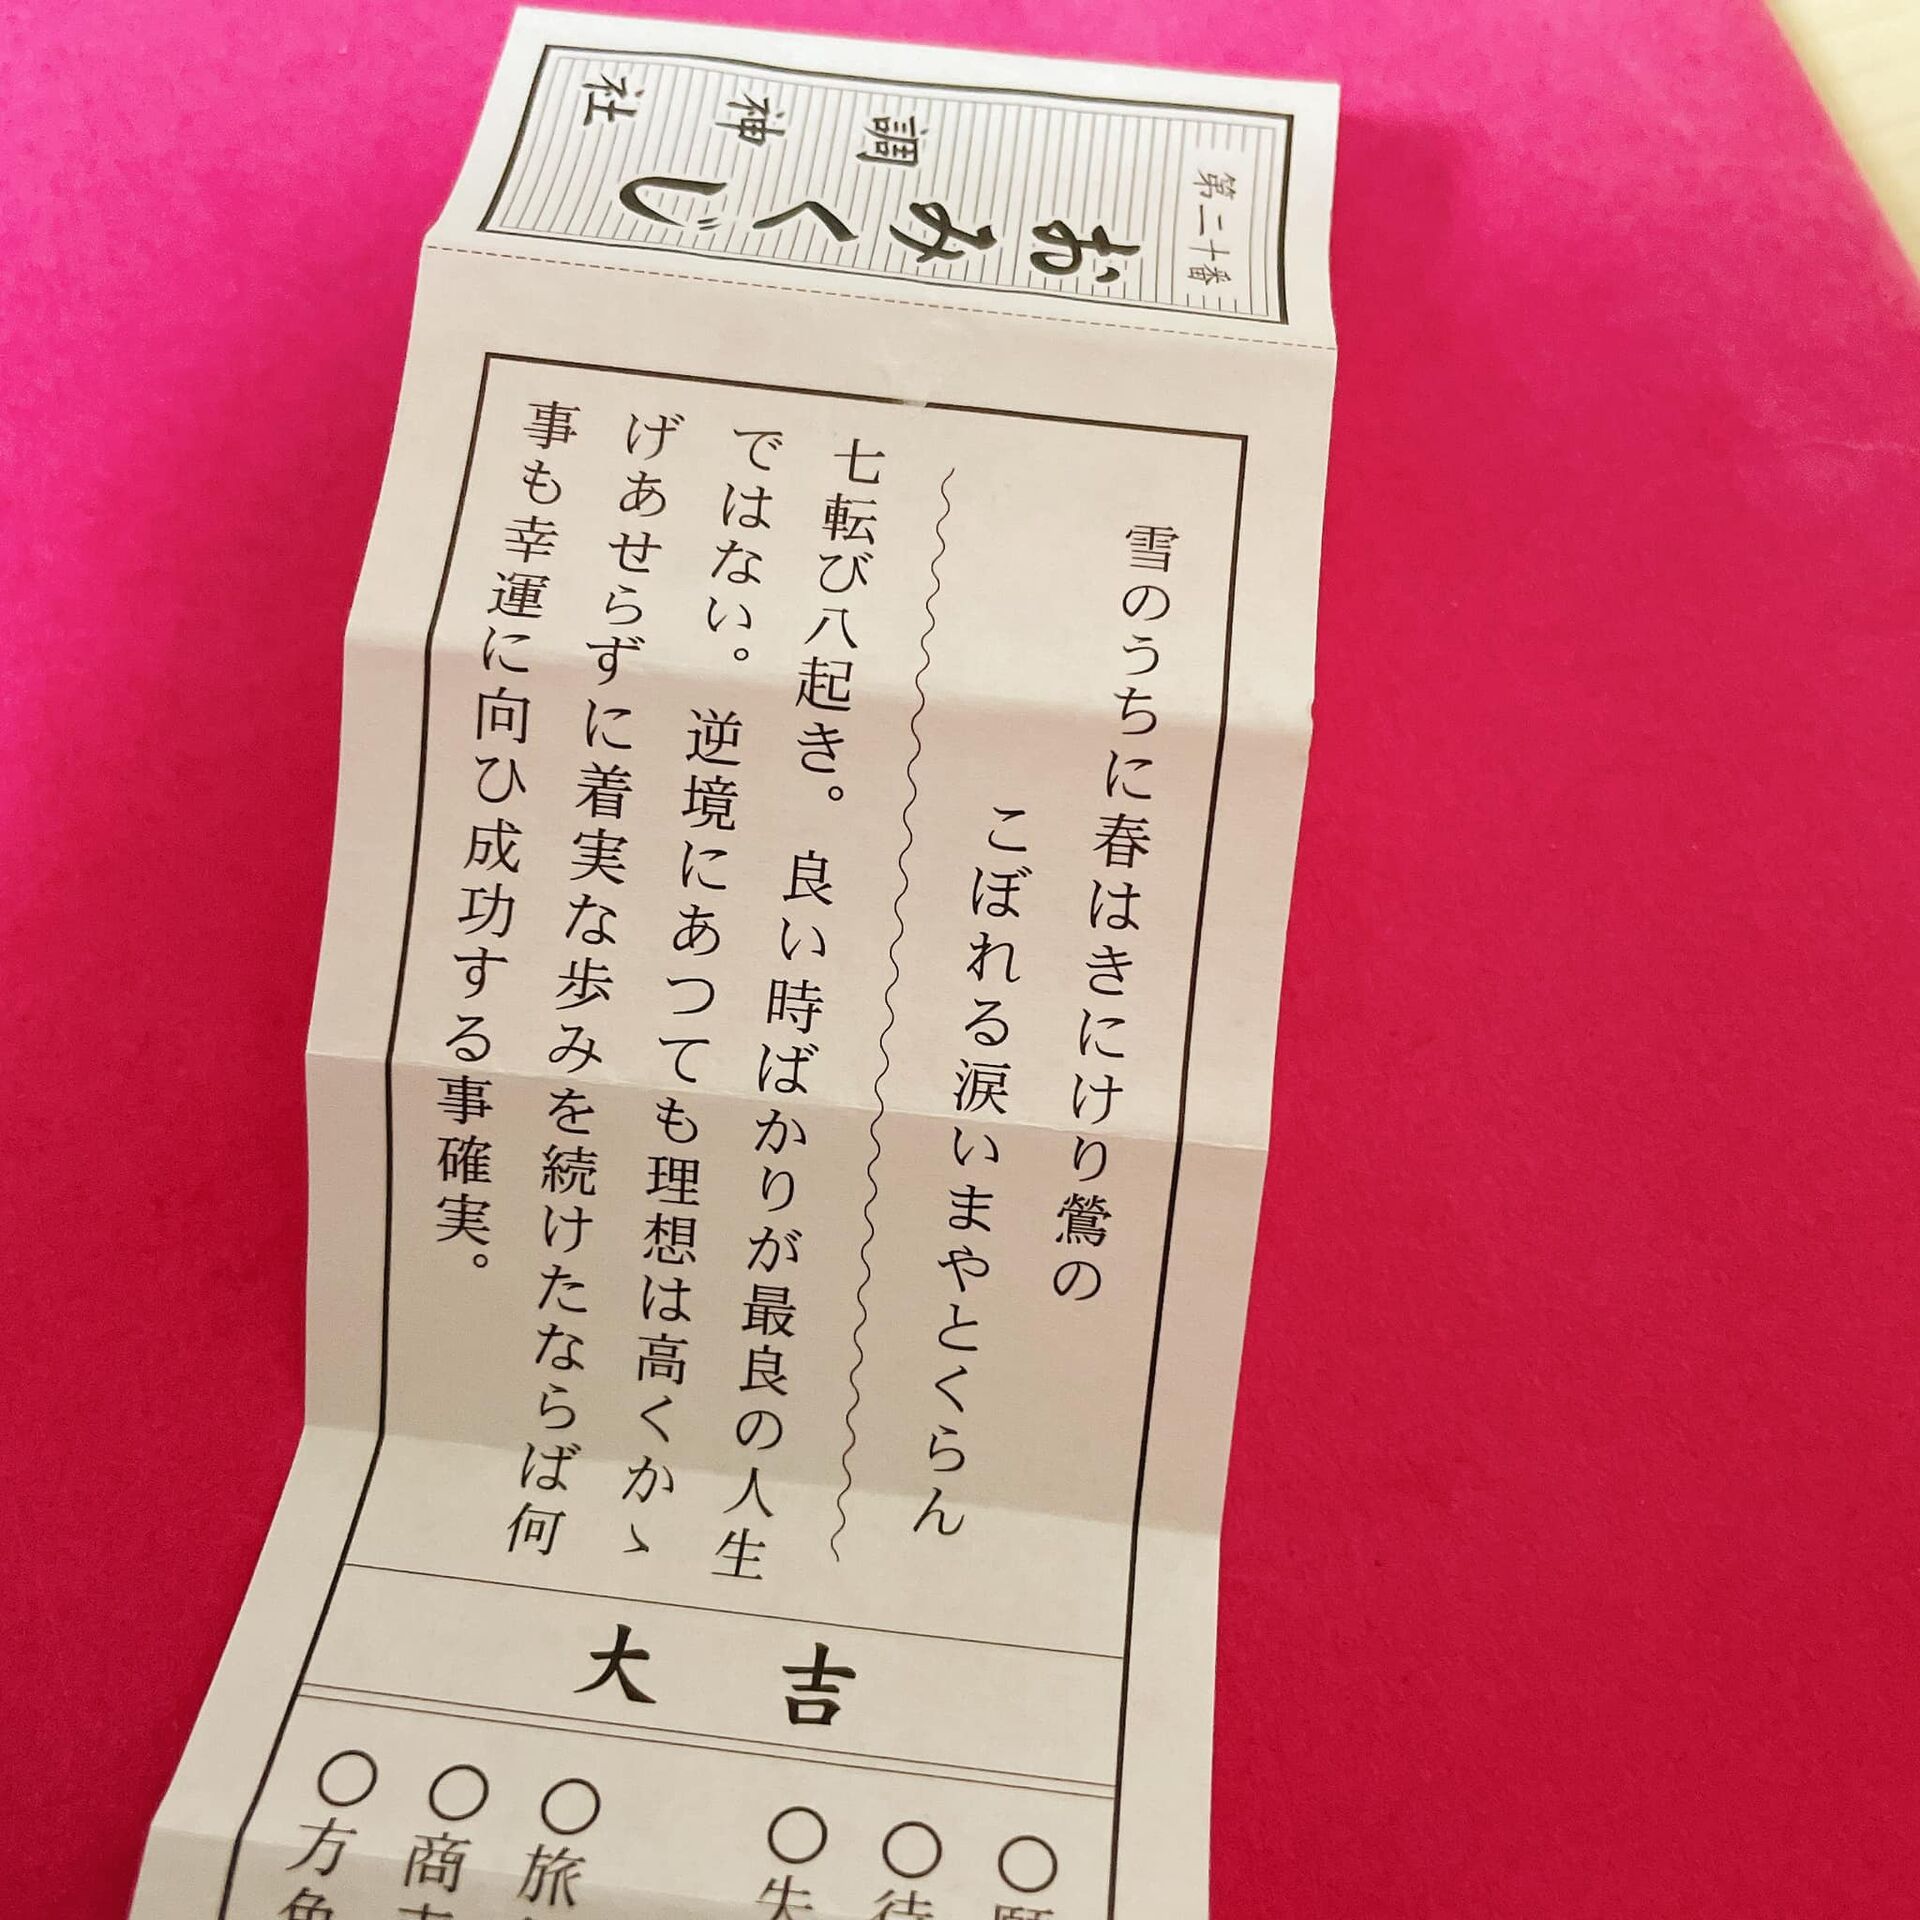 第二十番
おみくじ
調神社
雪のうちに春はきにけり鶯の
こぼれる涙いまやとくらん
七転び八起き。良い時ばかりが最良の人生
ではない。逆境にあつても理想は高くかゝ
げあせらずに着実な歩みを続けたならば何
事も幸運に向ひ成功する事確実。
大吉
○
○待
○失
○旅
○商
○方角